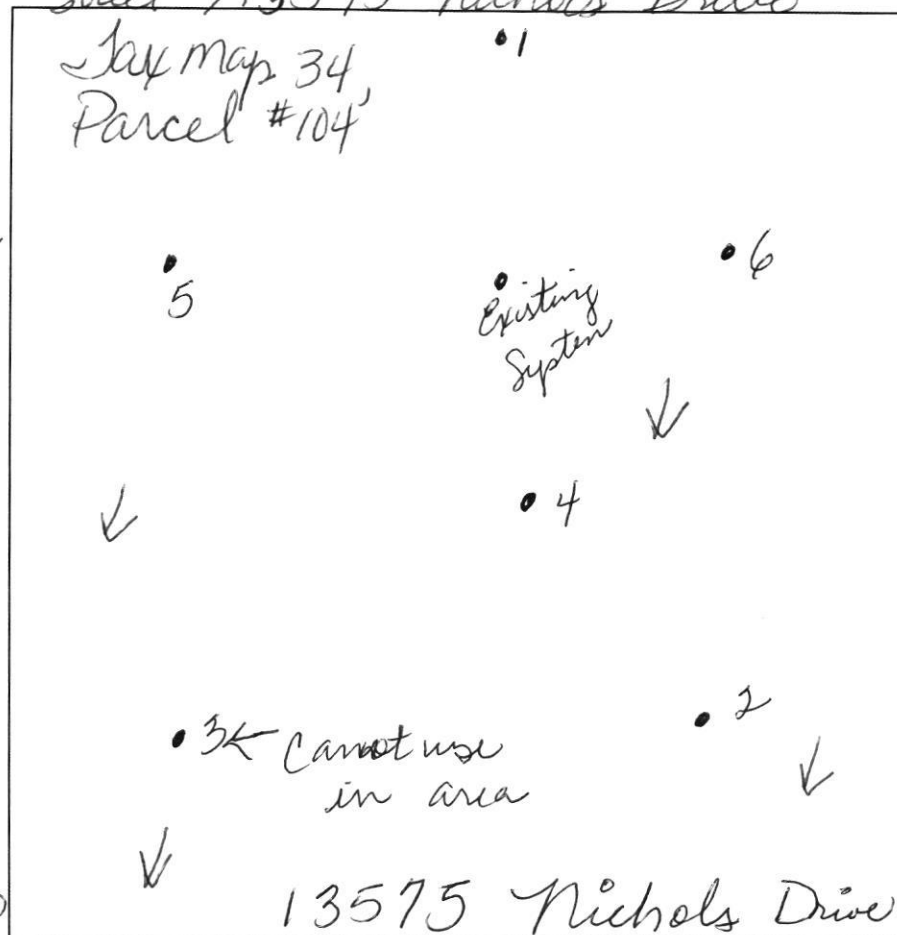 13575 Nichols Drive
Tax Map 34,
Parcel #104
1
5
6
Existing
System
4
3 ← Cannot use
in area
2
13575 Nichols Drive